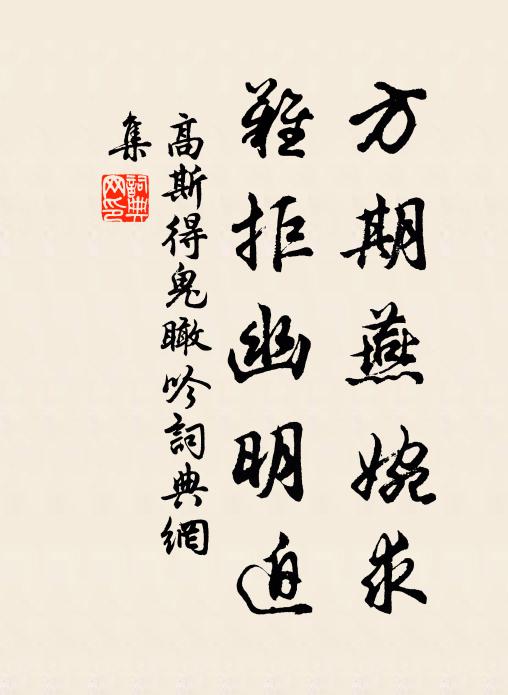 方期燕婉求
難拒幽明迫
高斯得鬼瞰吟詞典網
集
詞典網印